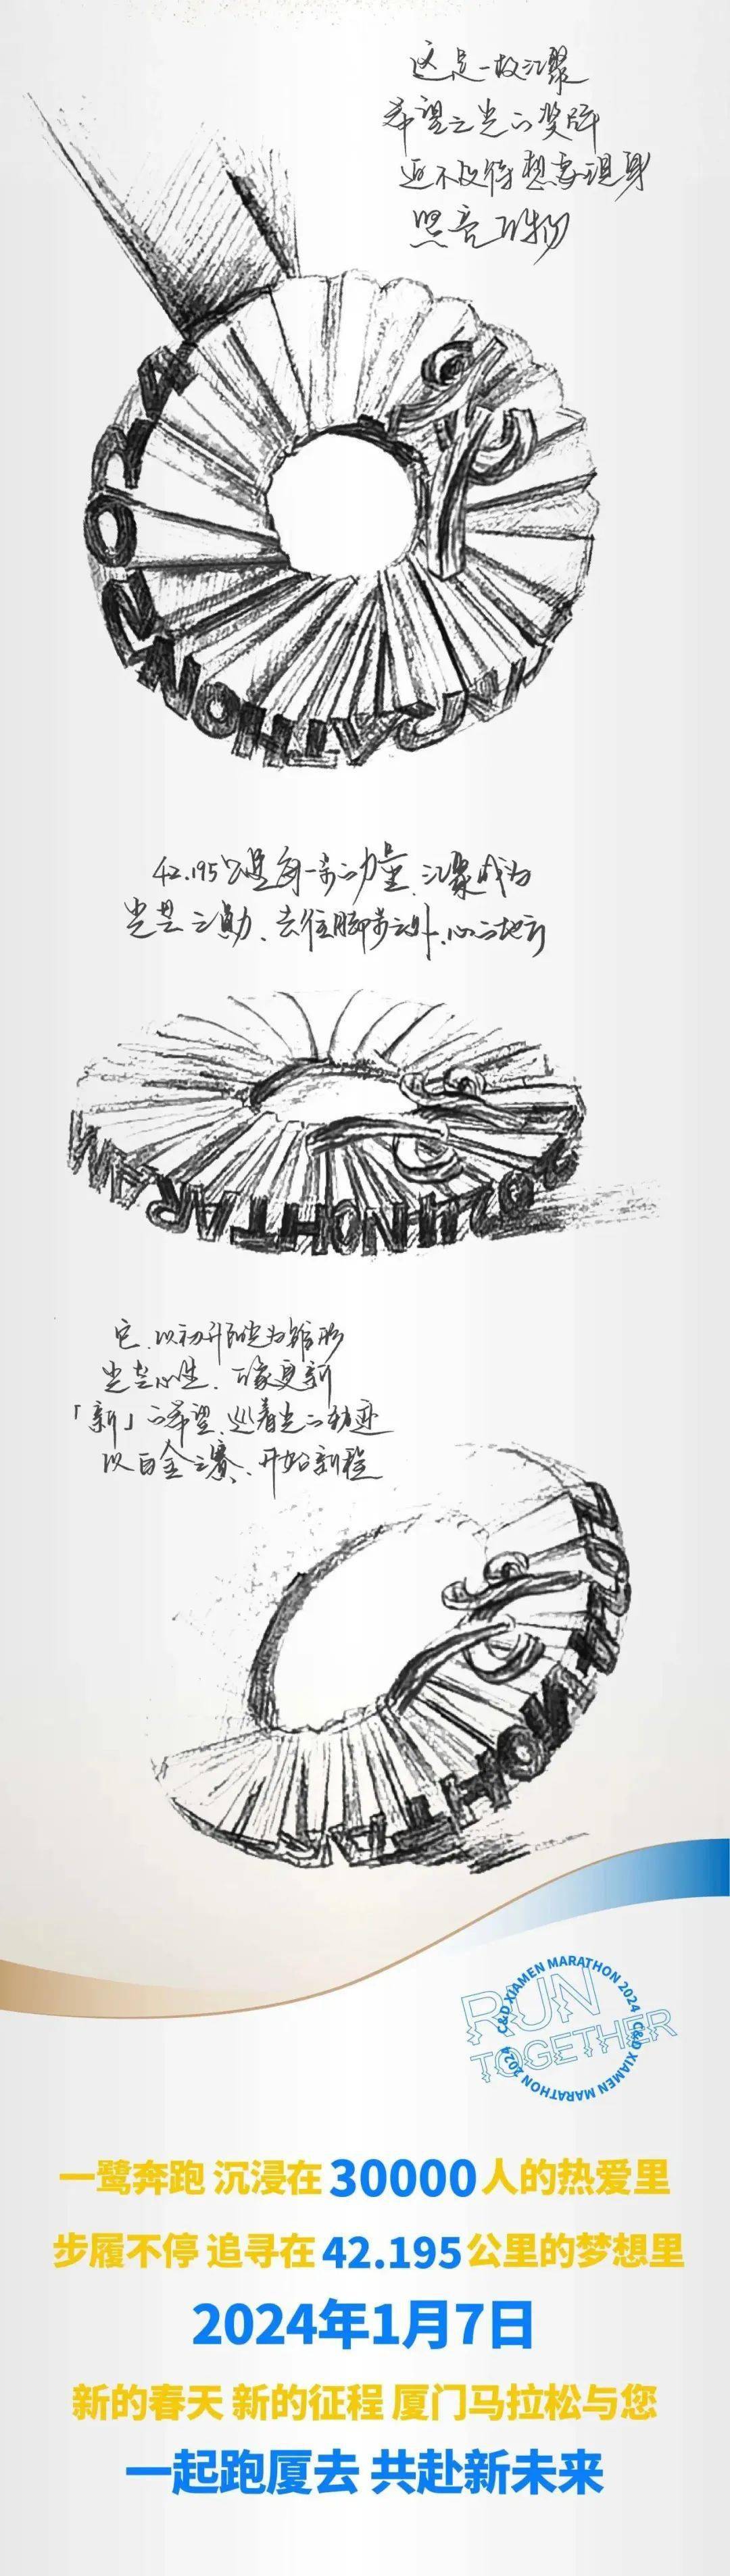 这是一枚汇聚
希望之光的奖牌
迫不及待想要现身
照亮万物
42.195公里每一步的力量、汇聚成为
光芒之勋、去往脚步之外、心之地方
它、以初升阳光为雏形
光芒心生、万象更新
「新」的希望、巡着光的轨迹
以白金之赛、开始新程
C&D XIAMEN MARATHON 2024 C&D XIAMEN MARATHON 2024
RUN
TOGETHER
一鹭奔跑 沉浸在30000人的热爱里
步履不停 追寻在42.195公里的梦想里
2024年1月7日
新的春天 新的征程 厦门马拉松与您
一起跑厦去 共赴新未来